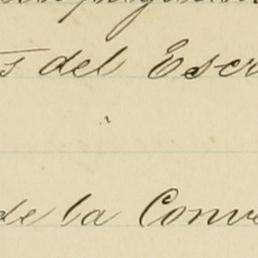 s del Escr
de la Conve